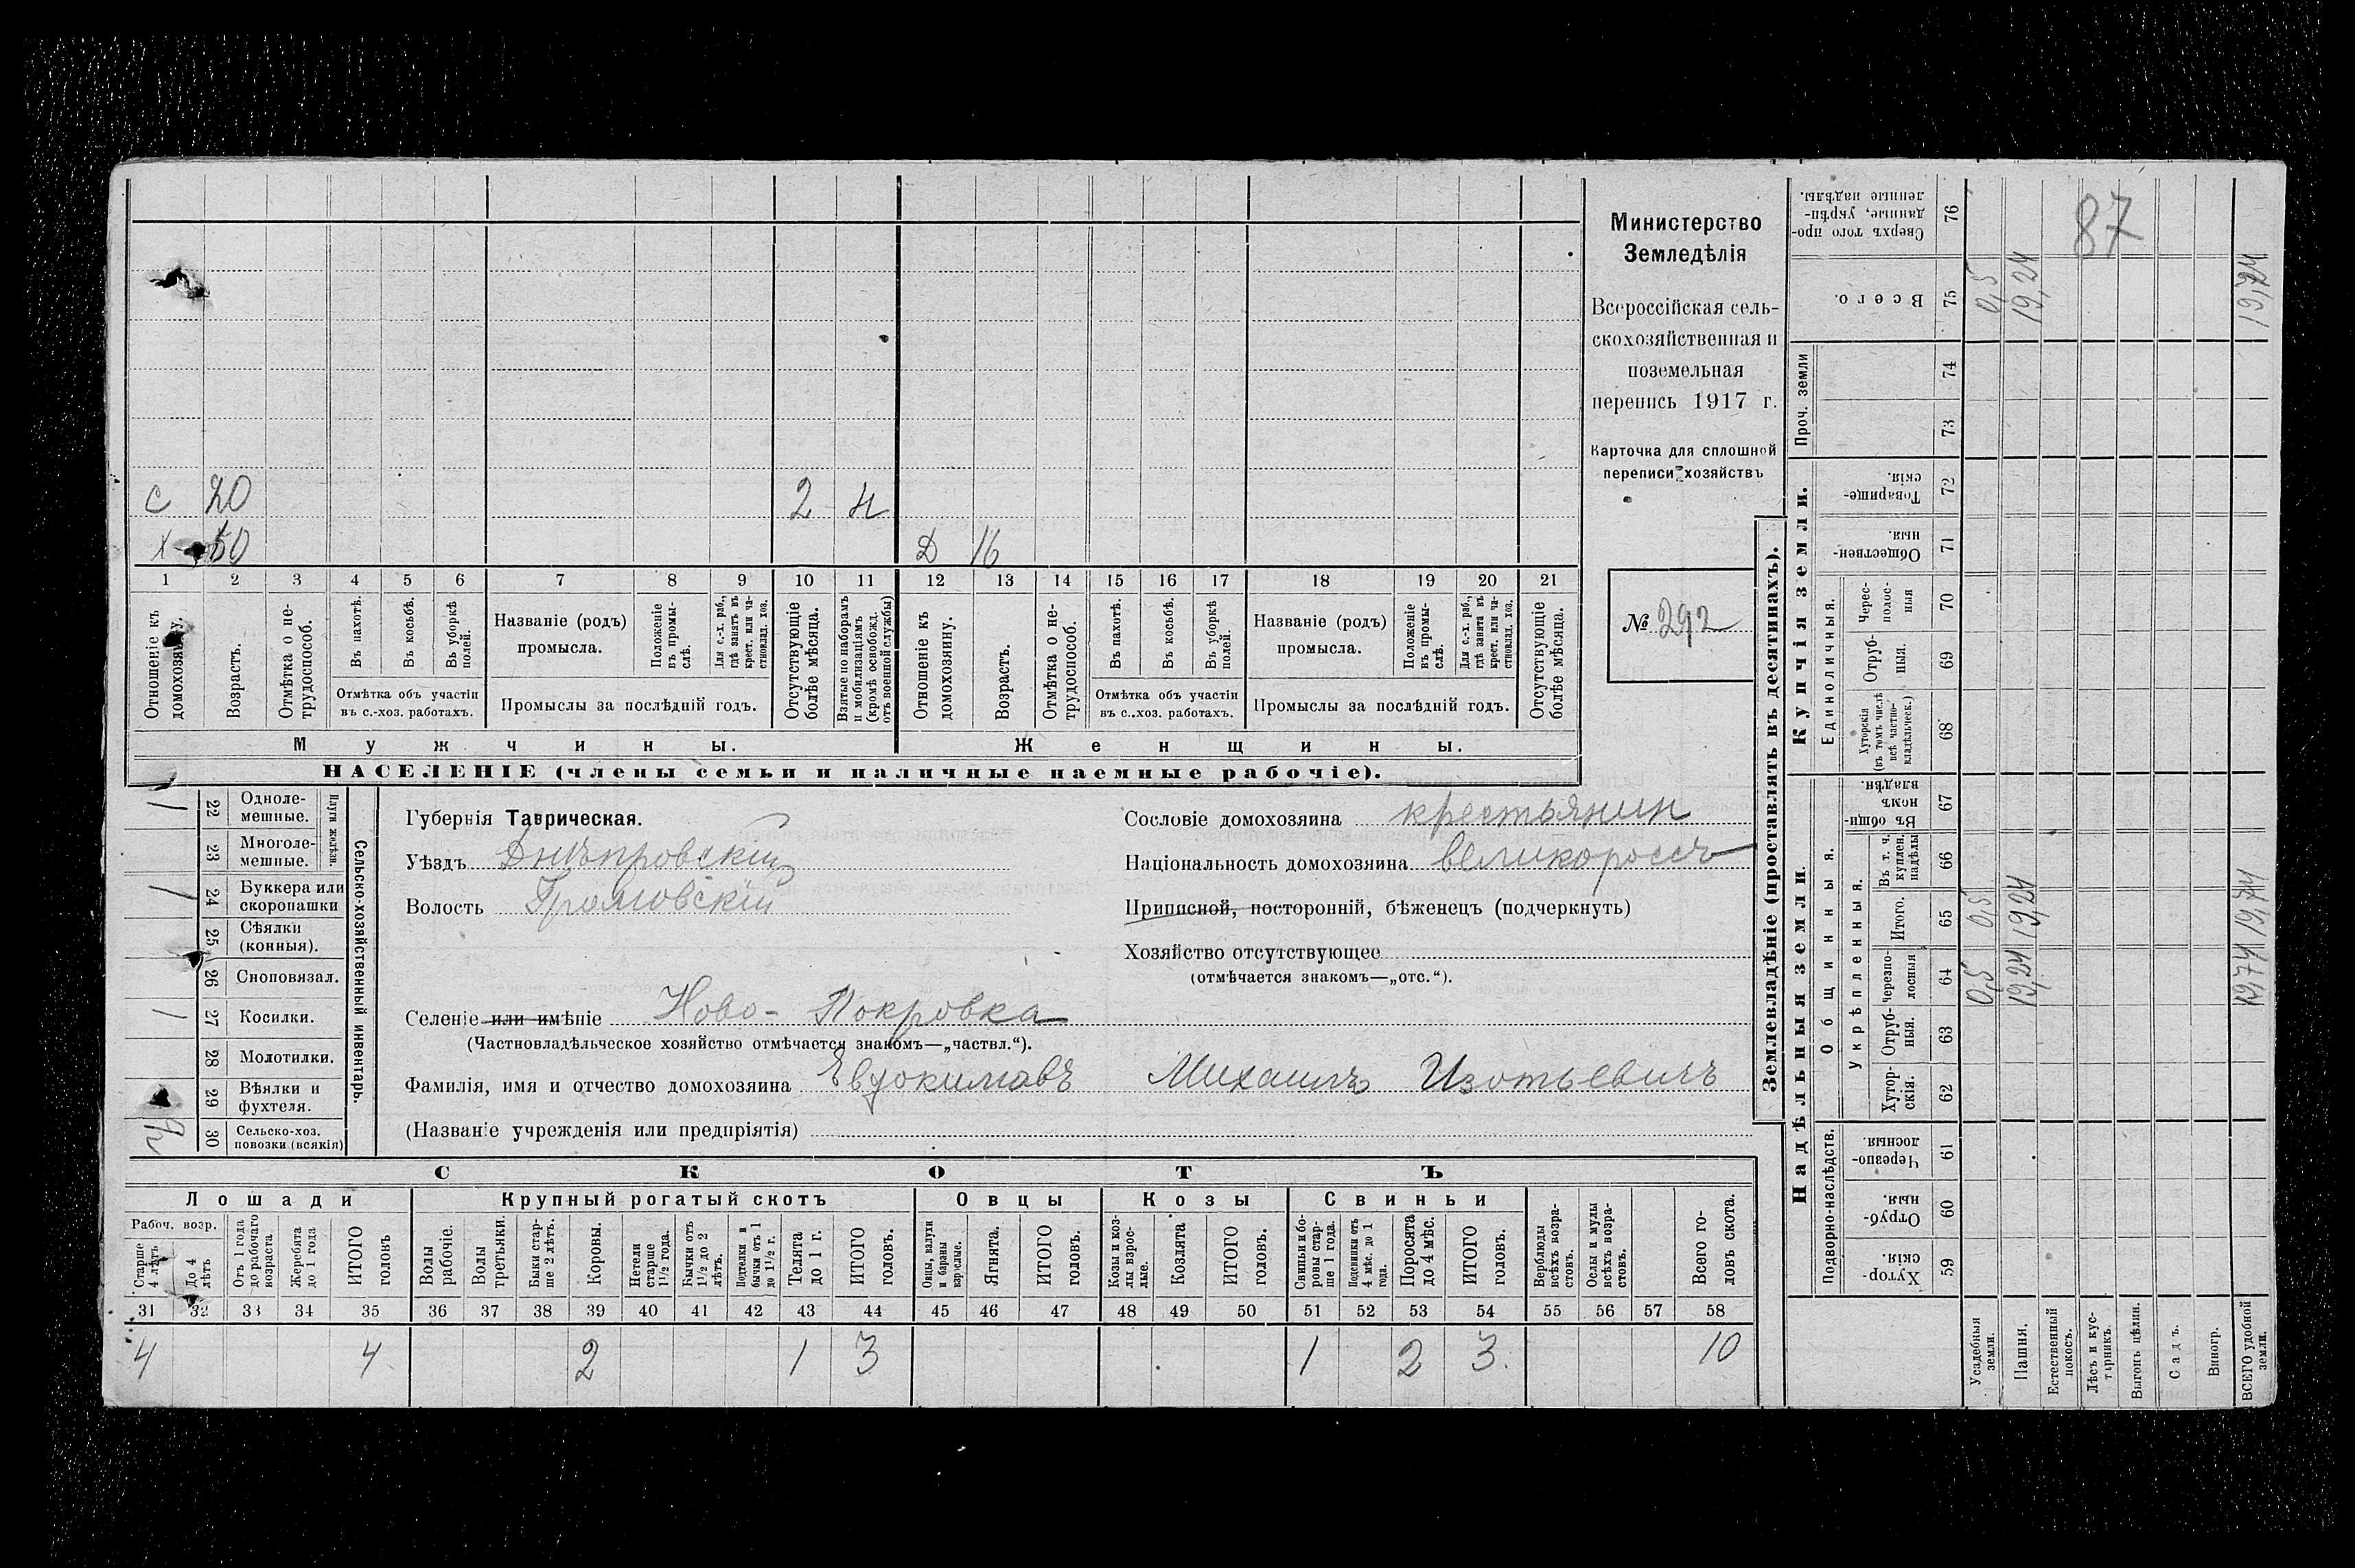 Министерство
Земледѣлія
Всероссійская сель-
скохозяйственная и
поземельная
перепись 1917 г.
Карточка для сплошной
переписи хозяйствъ
№ 292
87
с 20 2 н
х 50 Д 16
1 2 3 4 5 6 7 8 9 10 11 12 13 14 15 16 17 18 19 20 21
Отношеніе къ домохозяину.
Возрастъ.
Отмѣтка о не-трудоспособ.
Въ пахотѣ.
Въ косьбѣ.
Въ уборкѣ полей.
Отмѣтка объ участіи
въ с.-хоз. работахъ.
Названіе (родъ)
промысла.
Положеніе въ промы-слѣ.
Для с.-х. раб., гдѣ занятъ въ крест. или ча-стновлад. хоз.
Промыслы за послѣдній годъ.
Отсутствующіе болѣе мѣсяца.
Взятые по наборамъ и мобилизаціямъ (кромѣ освобожд. отъ военной службы)
Отношеніе къ домохозяину.
Возрастъ.
Отмѣтка о не-трудоспособ.
Въ пахотѣ.
Въ косьбѣ.
Въ уборкѣ полей.
Отмѣтка объ участіи
въ с..хоз. работахъ.
Названіе (родъ)
промысла.
Положеніе въ промы-слѣ.
Для с.-х. раб., гдѣ занята въ крест. или ча-стновлад. хоз.
Промыслы за послѣдній годъ.
Отсутствующіе болѣе мѣсяца.
Мужчины.
Женщины.
НАСЕЛЕНІЕ (члены семьи и наличные наемные рабочіе).
Сельско-хозяйственный инвентарь.
Плуги желѣзн.
1 22 Одноле-мешные.
23 Многоле-мешные.
1 24 Буккера или скоропашки
25 Сѣялки (конныя).
26 Сноповязал.
1 27 Косилки.
28 Молотилки.
29 Вѣялки и фухтеля.
30 Сельско-хоз. повозки (всякія)
Губернія Таврическая.
Уѣздъ Днѣпровскій
Волость Громовскій
Селеніе или имѣніе Ново-Покровка
(Частновладѣльческое хозяйство отмѣчается знакомъ—„частвл.“).
Фамилія, имя и отчество домохозяина Евдокимавъ Михаилъ Изотьевичъ
(Названіе учрежденія или предпріятія)
Сословіе домохозяина крестьянин
Національность домохозяина великороссъ
Приписной, посторонній, бѣженецъ (подчеркнуть)
Хозяйство отсутствующее
(отмѣчается знакомъ—„отс.“).
СКОТЪ
Лошади
Крупный рогатый скотъ
Овцы
Козы
Свиньи
Рабоч. возр.
Старше 4 лѣтъ
До 4 лѣтъ
Отъ 1 года до рабочаго возраста
Жеребята до 1 года
ИТОГО головъ
Волы рабочіе.
Волы третьяки.
Быки стар-ше 2 лѣтъ.
Коровы.
Нетели старше 1 1/2 года.
Бычки отъ 1 1/2 до 2 лѣтъ.
Подтелки и бычки отъ 1 до 1 1/2 г.
Телята до 1 г.
ИТОГО головъ.
Овцы, валухи и бараны взрослые.
Ягнята.
ИТОГО головъ.
Козы и коз-лы взрос-лые.
Козлята
ИТОГО головъ.
Свиньи и бо-ровы стар-ше 1 года.
Подсвинки отъ 4 мѣс. до 1 года.
Поросята до 4 мѣс.
ИТОГО головъ.
Верблюды всѣхъ возра-стовъ.
Ослы и мулы всѣхъ возра-стовъ.
Всего го-ловъ скота.
31 32 33 34 35 36 37 38 39 40 41 42 43 44 45 46 47 48 49 50 51 52 53 54 55 56 57 58
4 4 2 1 3 1 2 3 10
Землевладѣніе (проставлять въ десятинахъ).
Надѣльныя земли.
Купчія земли.
Проч. земли
Подворно-наслѣдств.
Общинныя.
Укрѣпленныя.
Единоличныя.
Хутор-скія. 59
Отруб-ныя. 60
Черезпо-лосныя. 61
Хутор-скія. 62
Отруб-ныя. 63
Черезпо-лосныя 64
Итого. 65
Въ т. ч. куплен. надѣлы 66
Въ общи-номъ владѣн. 67
Хуторскія (въ томъ числѣ всѣ частно-владѣльческ.) 68
Отруб-ныя. 69
Черес-полос-ныя 70
Обществен-ныя. 71
Товарище-скія. 72
73
74
Всего. 75
Сверхъ того про-данные, укрѣп-ленные надѣлы. 76
Усадебныя земли. 0,5 0,5 0,5
Пашня. 19,24 19,24 19,24
Естественный покосъ.
Лѣсъ и кус-тарникъ.
Выгонъ цѣлин.
Садъ.
Виногр.
ВСЕГО удобной земли. 19,74 19,74 19,74